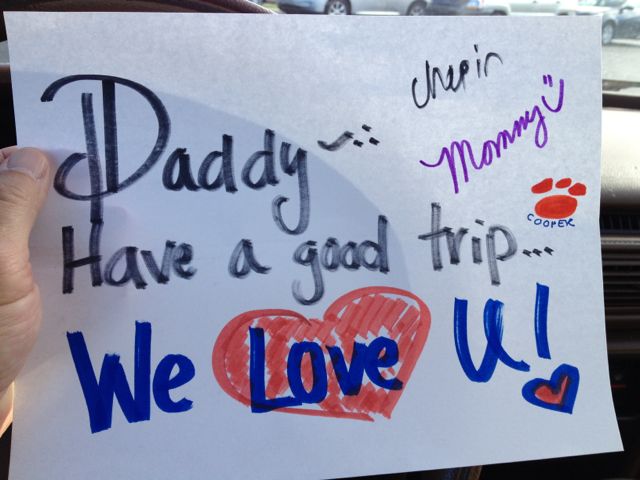 Cherin
Mommy
COOPER
Daddy ~:
Have a good trip...
We Love U!